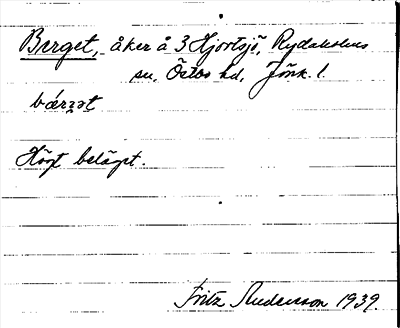 Berget, åker å 3 Hjortsjö, Rydaholms
sn, Östbo hd, Jönk. l.
bærʒət
Högt beläget.
Fritz Andersson 1939